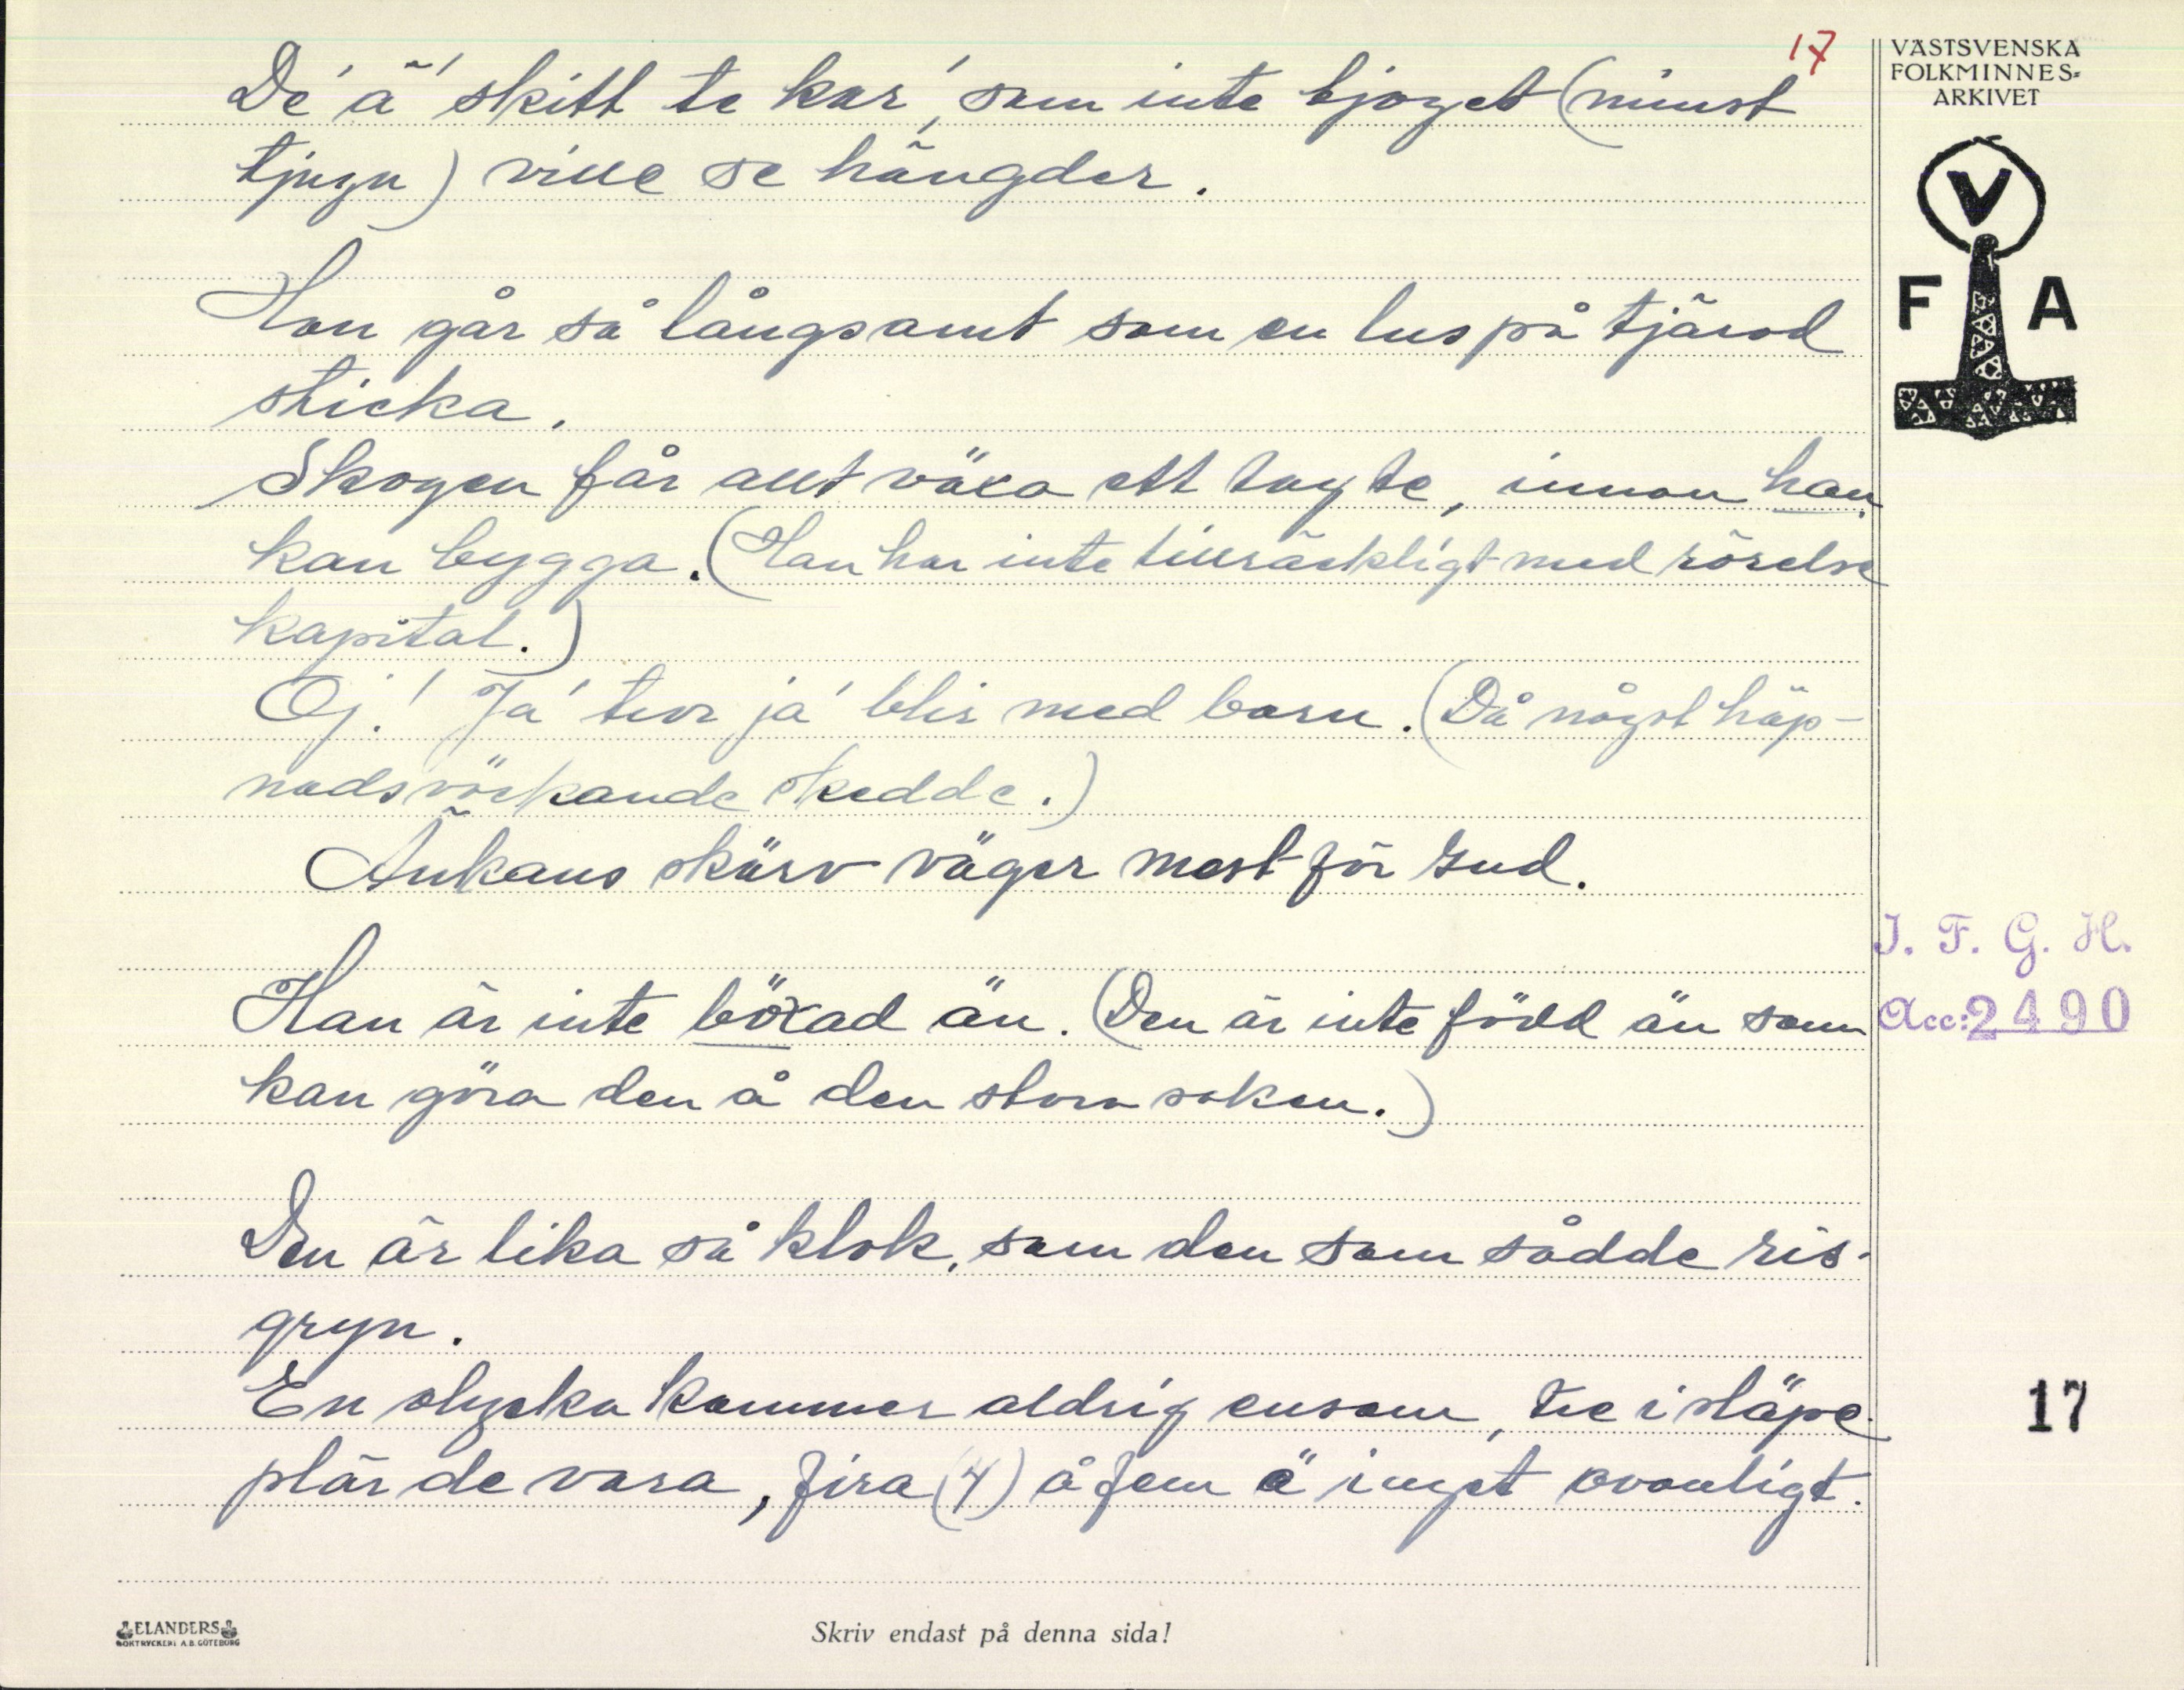 17
De' ä' skitt te kar', som inte tjoget (minst
tjugu) ville se hängder.
Hon går så långsamt som en lus på tjärad
sticka.
Skogen får allt växa ett tag te, innan han
kan bygga. (Han har inte tillräckligt med rörelse
kapital.)
Oj! Ja' tror ja' blir med barn. (Då något häp-
nadsväckande skedde.)
Änkans skärv väger mest för Gud.
Han är inte böxad än. (Den är inte född än som
kan göra den å den stora saken.)
Den är lika så klok, som den som sådde ris-
gryn.
En olycka kommer aldrig ensam, tre i släpe
plär de vara, fira (4) å fem ä inget ovanligt.
VÄSTSVENSKA
FOLKMINNES=
ARKIVET
V
F A
I. F. G. H.
Acc: 2490
17
ELANDERS
BOKTRYCKERI A.B. GÖTEBORG
Skriv endast på denna sida!